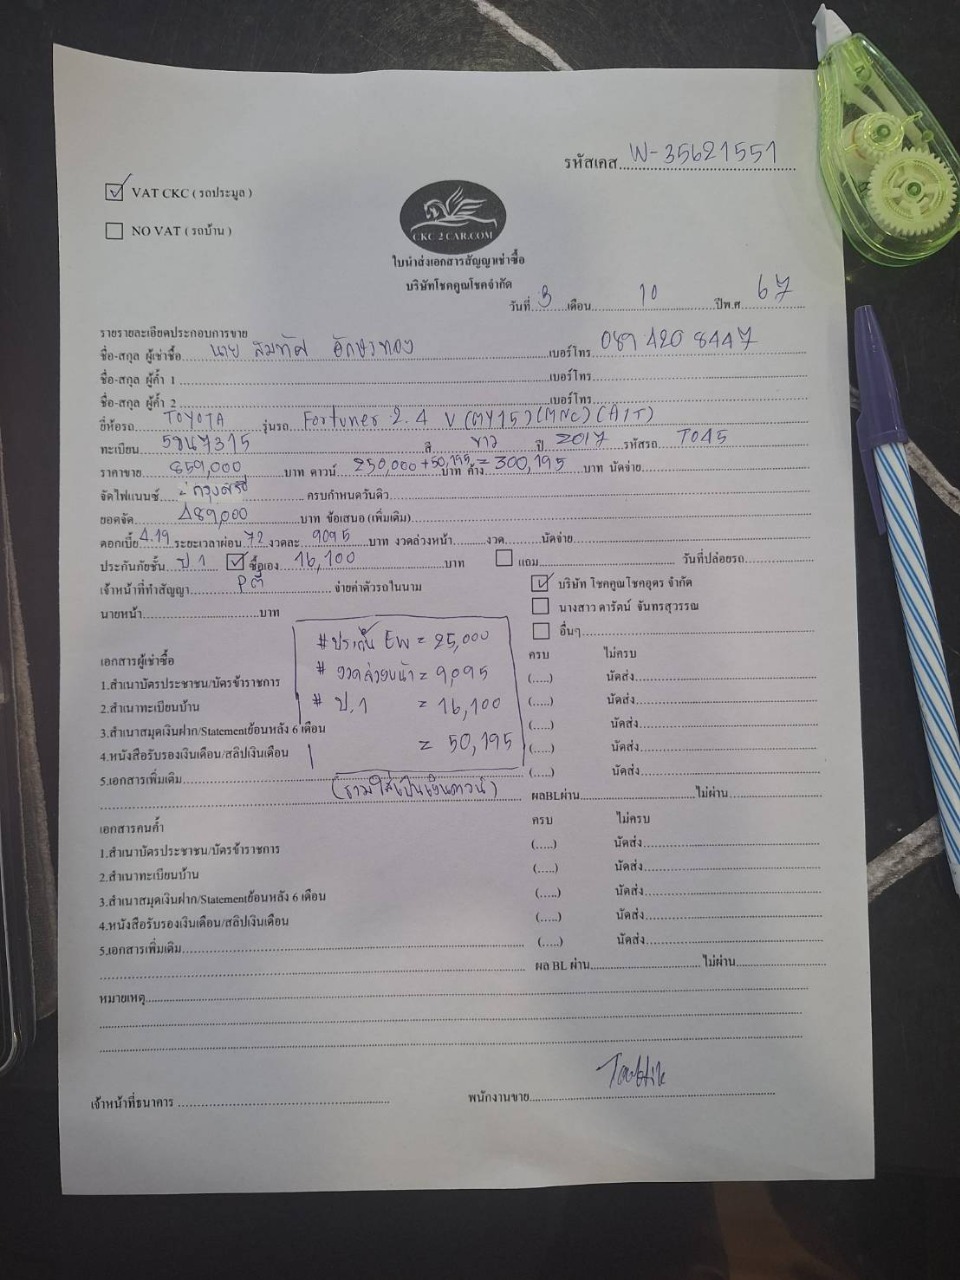 รหัสเคส....W-35621551
☑ VAT CKC ( รถประมูล )
☐ NO VAT ( รถบ้าน )
CKC 2 CAR.COM
ใบนำส่งเอกสารสัญญาเช่าซื้อ
บริษัทโชคคูณโชคจำกัด
วันที่ 3 เดือน 10 ปีพ.ศ 67
รายรายละเอียดประกอบการขาย
ชื่อ-สกุล ผู้เช่าซื้อ นาย เบอร์โทร 089 420 8447
ชื่อ-สกุล ผู้ค้ำ 1 เบอร์โทร
ชื่อ-สกุล ผู้ค้ำ 2 เบอร์โทร
ยี่ห้อรถ TOYOTA รุ่นรถ Fortuner 2.4 V (MY15)(MNC)(A/T)
ทะเบียน สี ขาว ปี 2017 รหัสรถ T045
ราคาขาย 859,000 บาท ดาวน์ 250,000+50,195 = 300,195 บาท ค้าง บาท นัดจ่าย
จัดไฟแนนซ์ กรุงศรี ครบกำหนดวันดิว
ยอดจัด 489,000 บาท ข้อเสนอ (เพิ่มเติม)
ดอกเบี้ย 4.19 ระยะเวลาผ่อน 72 งวดละ 9095 บาท งวดล่วงหน้า งวด นัดจ่าย
ประกันภัยชั้น ป 1 ☑ ซื้อเอง 16,100 บาท ☐ แถม วันที่ปล่อยรถ
เจ้าหน้าที่ทำสัญญา จ่ายค่าตัวรถในนาม ☑ บริษัท โชคคูณโชคอุดร จำกัด
นายหน้า บาท ☐ นางสาว ดารัตน์ จันทรสุวรรณ
☐ อื่นๆ
#ประกัน EW = 25,000
# งวดล่วงหน้า = 9,095
# ป.1 = 16,100
= 50,195
(รวมใส่เป็นเงินดาวน์)
เอกสารผู้เช่าซื้อ ครบ ไม่ครบ
1.สำเนาบัตรประชาชน/บัตรข้าราชการ (.....) นัดส่ง
2.สำเนาทะเบียนบ้าน (.....) นัดส่ง
3.สำเนาสมุดเงินฝาก/Statementย้อนหลัง 6 เดือน (.....) นัดส่ง
4.หนังสือรับรองเงินเดือน/สลิปเงินเดือน (.....) นัดส่ง
5.เอกสารเพิ่มเติม (.....) นัดส่ง
ผลBLผ่าน ไม่ผ่าน
เอกสารคนค้ำ ครบ ไม่ครบ
1.สำเนาบัตรประชาชน/บัตรข้าราชการ (.....) นัดส่ง
2.สำเนาทะเบียนบ้าน (.....) นัดส่ง
3.สำเนาสมุดเงินฝาก/Statementย้อนหลัง 6 เดือน (.....) นัดส่ง
4.หนังสือรับรองเงินเดือน/สลิปเงินเดือน (.....) นัดส่ง
5.เอกสารเพิ่มเติม (.....) นัดส่ง
ผล BL ผ่าน ไม่ผ่าน
หมายเหตุ
เจ้าหน้าที่ธนาคาร พนักงานขาย